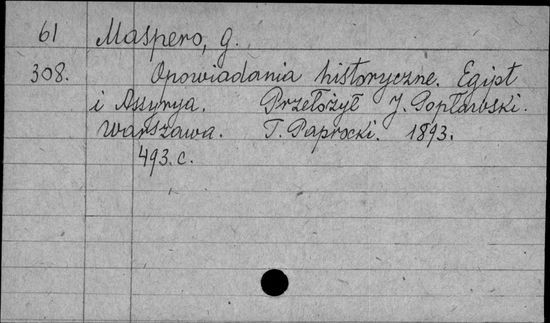 61 Maspero, G.
308. Opowiadania historyczne. Egipt
i Assyrya. Przełożył J. Popławski.
Warszawa. T. Paprocki. 1893.
493. c.